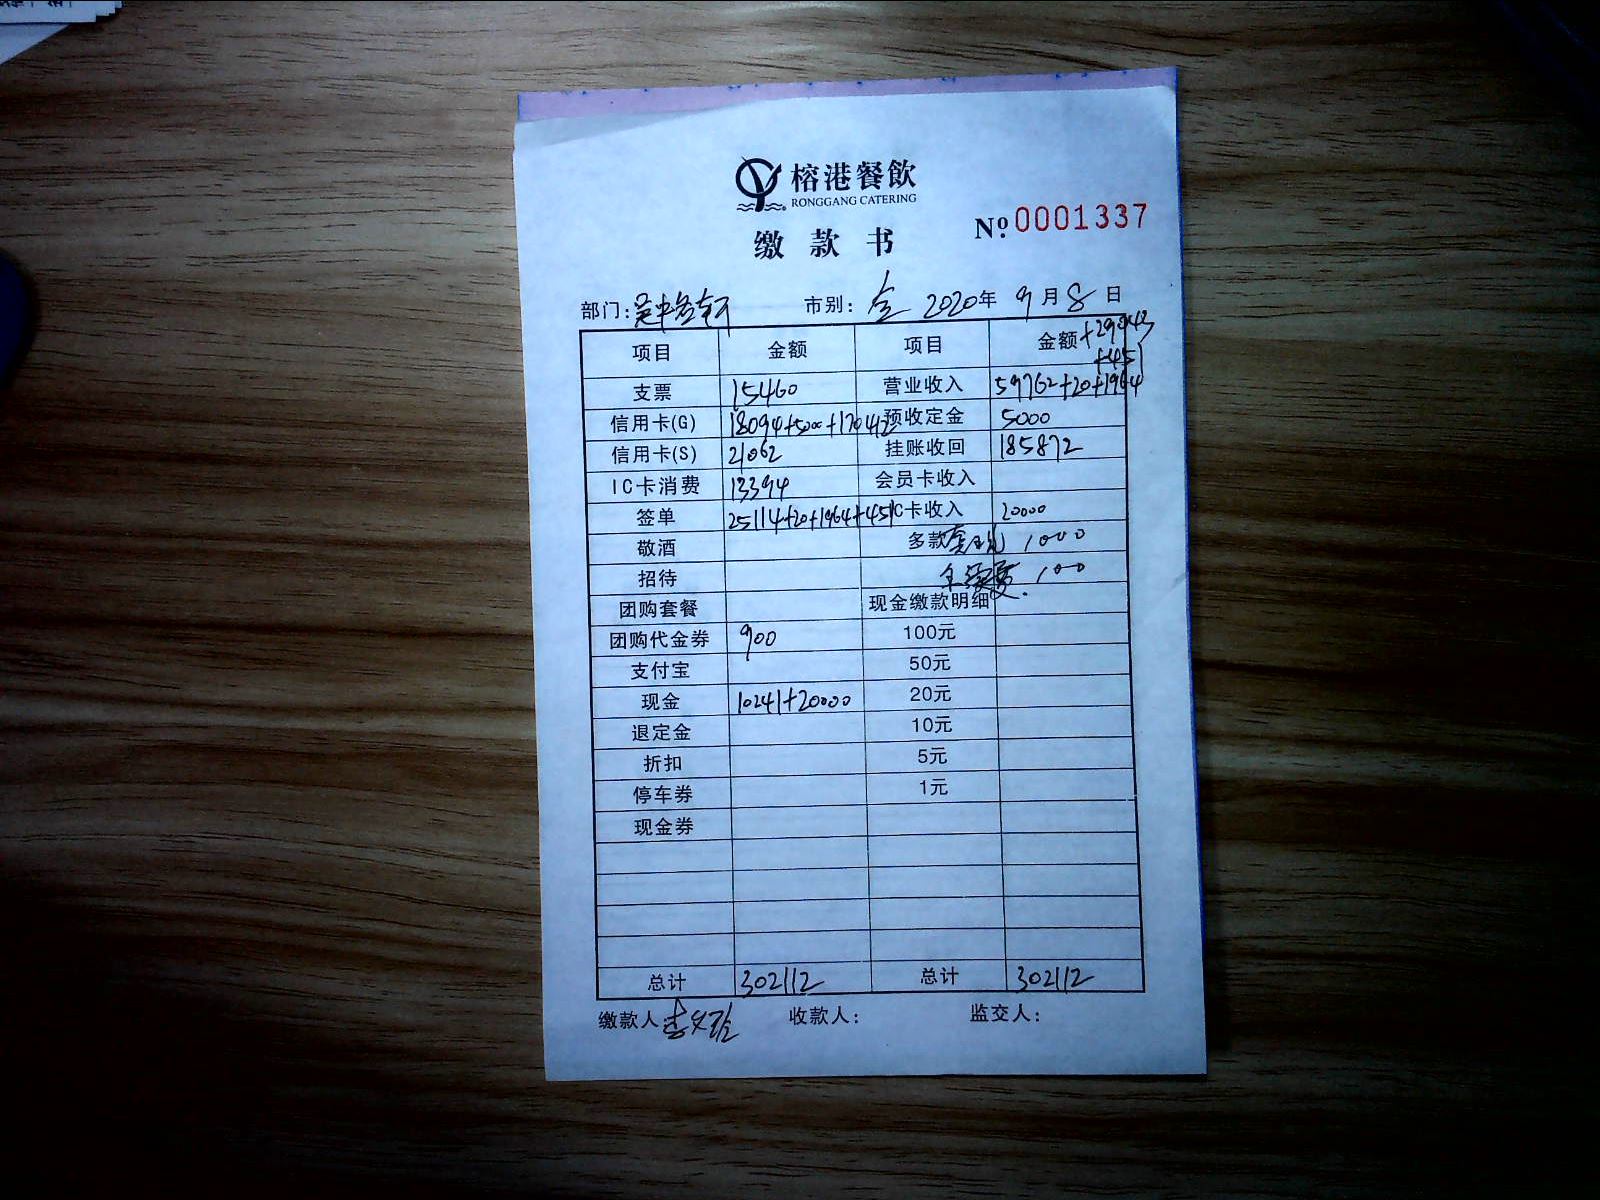 榕港餐飲
RONGGANG CATERING
缴款书
№0001337
部门: 市别: 全 2020年 9月8日
项目 金额 项目 金额 +29043
+451
支票 15460 营业收入 59762+20+1964
信用卡(G) 18094+5000+170412 预收定金 5000
信用卡(S) 21062 挂账收回 185872
IC卡消费 13394 会员卡收入
签单 25114+20+1964+451 IC卡收入 20000
敬酒 多款 1000
招待 100
团购套餐 现金缴款明细
团购代金券 900 100元
支付宝 50元
现金 10241+20000 20元
退定金 10元
折扣 5元
停车券 1元
现金券
总计 302112 总计 302112
缴款人: 收款人: 监交人: